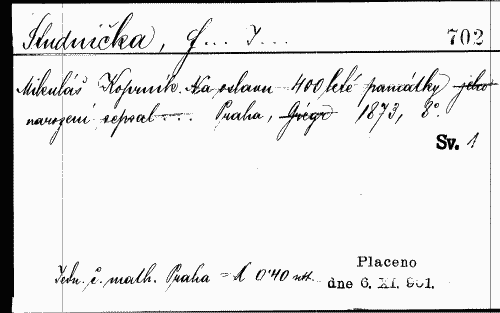 Studnička, F... J...
702
Mikuláš Koprník. Na oslavu 400leté památky jeho
narození sepsal .... Praha, Grégr 1873, 8°.
Sv. 1
Placeno
Jedn. č. math. Praha = 1 0'40
dne 6. XI. 901.